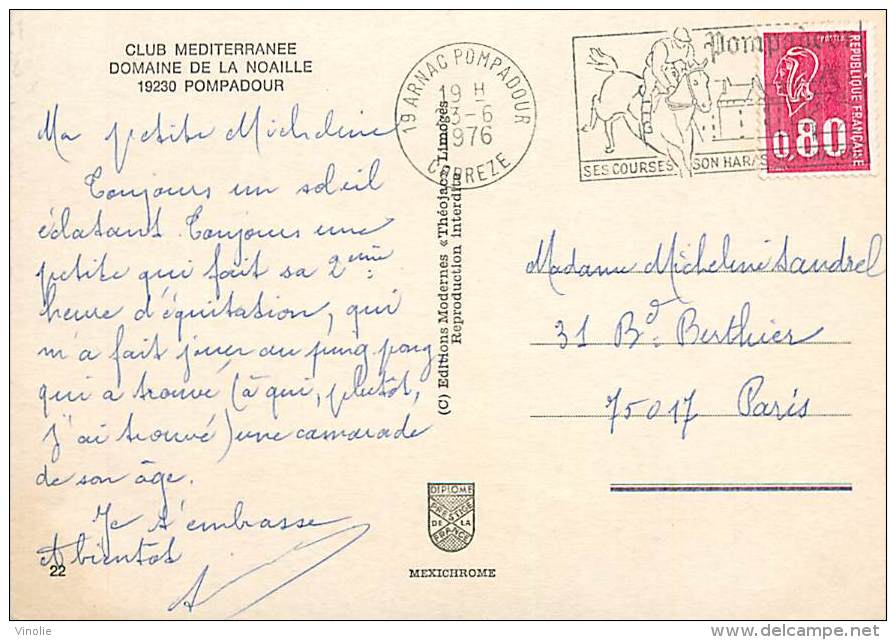 CLUB MEDITERRANEE
DOMAINE DE LA NOAILLE
19230 POMPADOUR
Ma petite Micheline
Toujours un soleil
éclatant. Toujours une
petite qui fait sa 2ème
heure d'équitation, qui
m'a fait jouer au ping pong
qui a trouvé (à qui, plutôt,
j'ai trouvé) une camarade
de son âge.
Je t'embrasse
A bientôt
A
22
(C) Editions Modernes «Théojac» Limoges
Reproduction Interdite
19 ARNAC POMPADOUR
19 H
3-6
1976
CORREZE
Pompadour
SES COURSES SON HARAS
REPUBLIQUE FRANÇAISE
0,80
Madame Micheline Sandrel
31 Bd Berthier
75017 Paris
DIPLOME
PRESTIGE
DE LA
FRANCE
MEXICHROME
Vinolie
www.delcampe.net